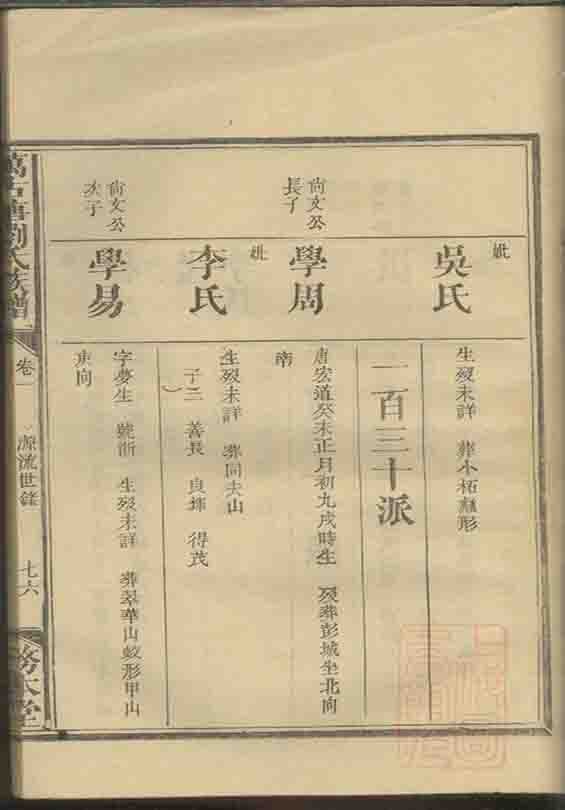 妣
吳氏
生歿未詳 葬小柘
一百三十派
尙文公
長子
學周
唐宏道癸未正月初九戌時生 歿葬彭城坐北向
南
妣
李氏
生歿未詳 葬同夫山
子三 善長 良 得茂
尙文公
次子
學易
字夢生 號 生歿未詳 葬翠華山蛟形甲山
庚向
劉氏族譜
卷一
源流世錄
七六
務本堂